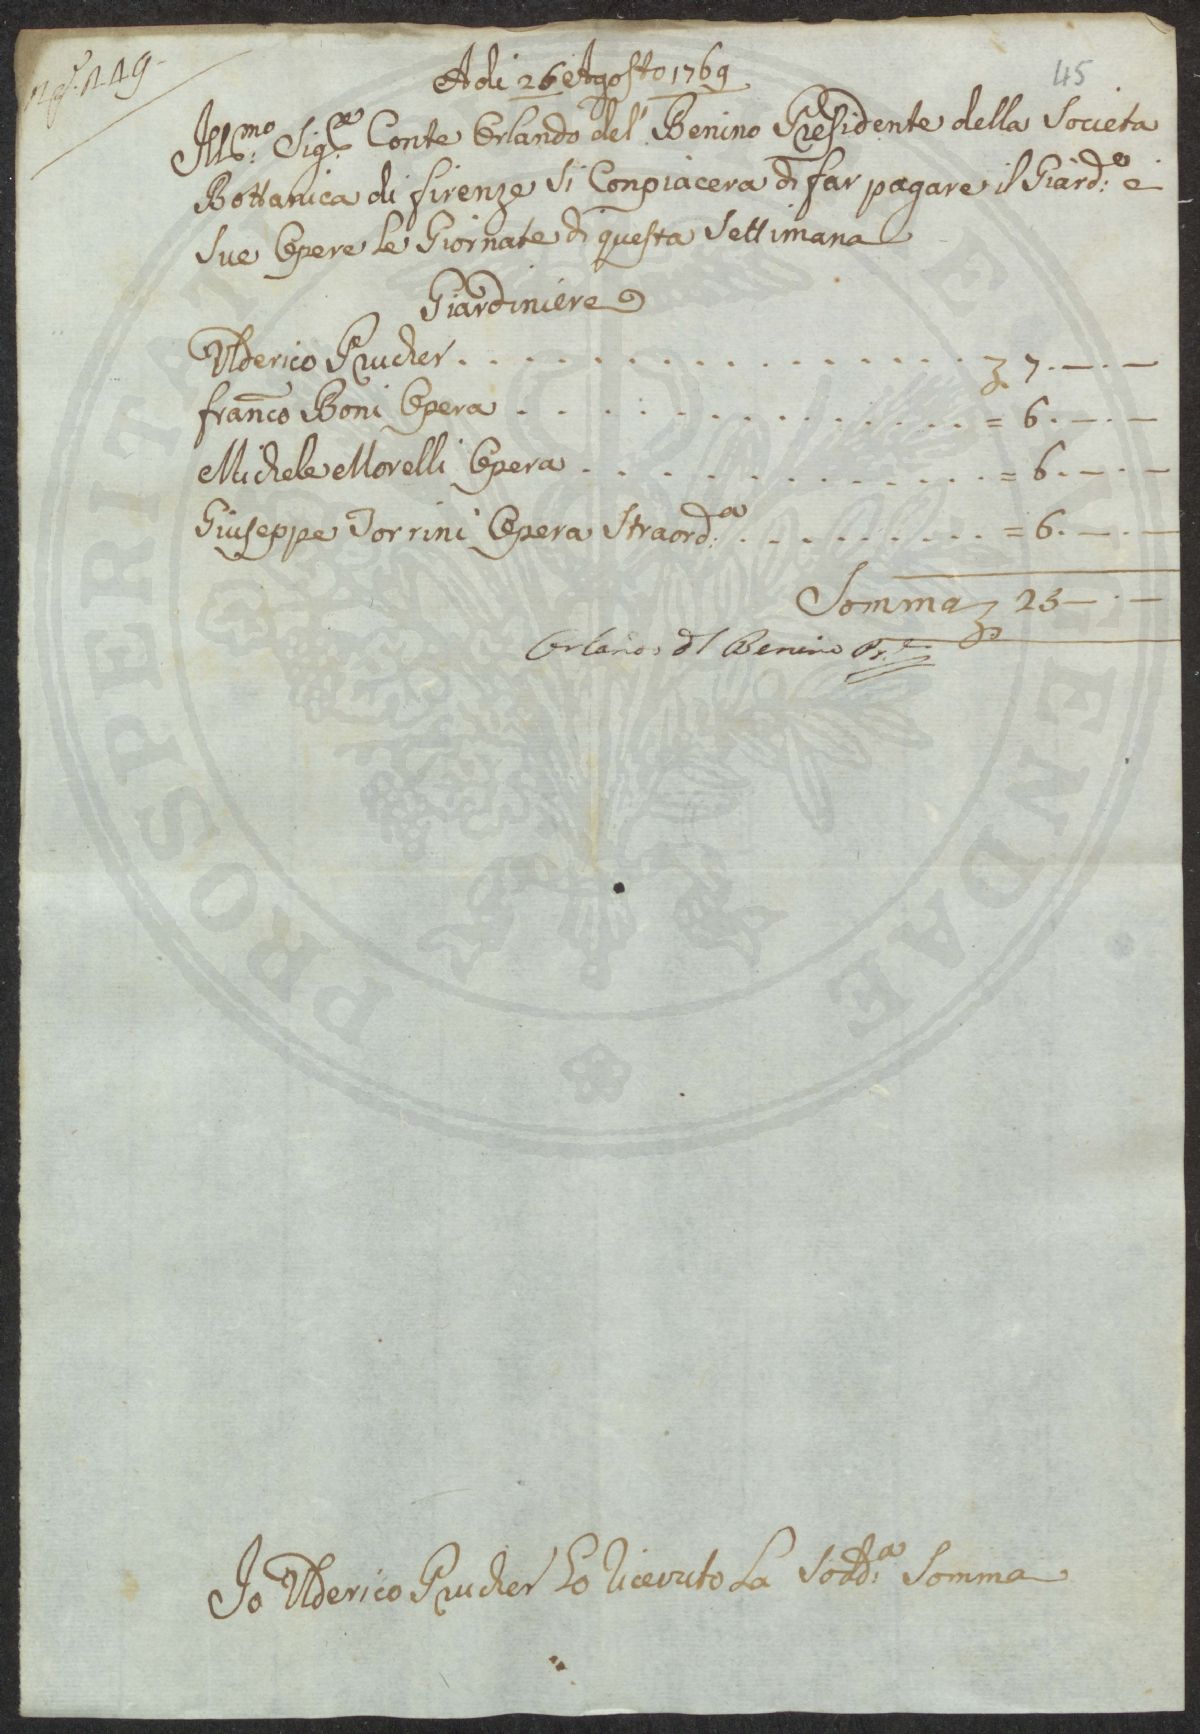 149
45
Adi 26 Agosto 1769
Ill:mo Sig:re Conte Orlando del Benino Presidente della Società
Bottanica di firenze si Conpiacera di far pagare il Giard:e e
sue Opere le Giornate di questa Settimana
Giardiniere
Ulderico Prucher . . . . . . . . . . . . . . . . 7.—.—
franco Boni Opera . . . . . . . . . . . . . = 6.—.—
Michele Morelli Opera . . . . . . . . . . . . = 6.—.—
Giuseppe Torrini Opera Straord:a . . . . . . . . . = 6.—.—
Somma 25—.—
Orlando del Benino Pr.e
Io Ulderico Prucher ho ricevuto La Sodd:a Somma
PROSPERITATI PUBLICAE AUGENDAE